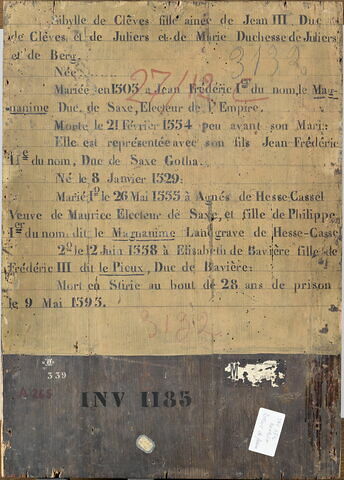 Sibylle de Clèves fille ainée de Jean III, Duc
de Clèves, et de Juliers et de Marie Duchesse de Juliers
et de Berg.
3132
Née
27/12
Mariée en 1503 a Jean Frédéric Ier du nom, le Mag-
nanime Duc de Saxe, Electeur de l'Empire.
Morte le 21 Février 1554 peu avant son Mari:
Elle est représentée avec son fils Jean Frédéric
IIe du nom, Duc de Saxe Gotha.
Né le 8 Janvier 1529:
Marié 1º le 26 Mai 1555 à Agnés de Hesse-Cassel
Veuve de Maurice Electeur de Saxe, et fille de Philippe
Ier du nom, dit le Magnanime Landgrave de Hesse-Cassel
2º le 12 Juin 1558 à Elisabeth de Bavière fille de
Frédéric III dit le Pieux, Duc de Bavière:
Mort en Stirie au bout de 28 ans de prison
le 9 Mai 1595.
3132
339
A 265
INV 1185